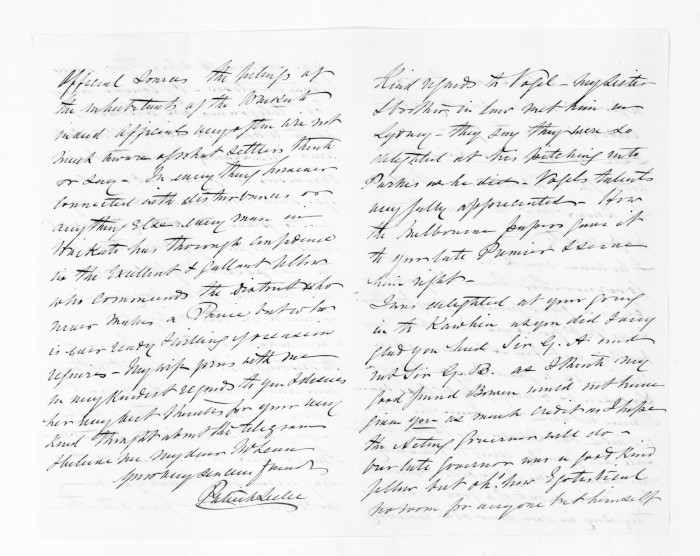 Official sources the feelings of
the inhabitants of the Waikato
indeed officials very often are not
much aware of what settlers think
or say – In every thing however
connected with disturbances or
anything else every man in
Waikato has thorough confidence
in the Excellent & gallant fellow
who commands the District who
never makes a Parade but who
is ever ready & willing if occasion
requires – My wife joins with me
in very kindest regards to you & desires
her very best thanks for your very
kind thought about the telegram
& believe me my dear McLean
Your very sincere friend
Patrick Leslie
Kind regards to Vogel – My sister
& brother in law met him in
Sydney – they say they were so
delighted at his pitching into
Parkes as he did – Vogels talents
very fully appreciated – How
the Melbourne papers gave it
to your late Premier & serve
him right –
I was delighted at your going
in the Kawhia as you did & very
glad you had Sir G. A. and
not Sir G. B. as I think my
good friend Bowen would not have
given you as much credit as I hope
the Acting Governor will do –
our late Governor was a good kind
fellow but oh! how Egotistical
no room for anyone but himself